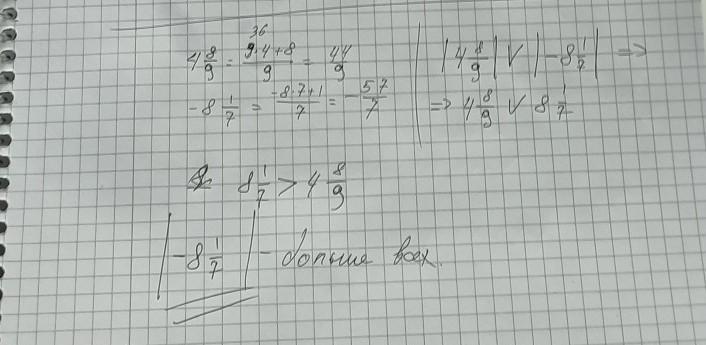 36
4 8/9 = (9·4+8)/9 = 44/9
-8 1/7 = (-8·7+1)/7 = -57/7
|4 8/9| V |-8 1/7| =>
=> 4 8/9 V 8 1/7
8 1/7 > 4 8/9
|-8 1/7| - больше всех.